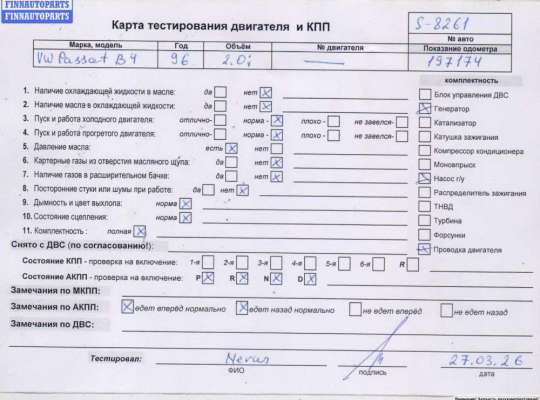 FINNAUTOPARTS
FINNAUTOPARTS
Карта тестирования двигателя и КПП
S-8261
№ авто
Марка, модель Год Объём № двигателя Показание одометра
VW Passat B4 96 2.0i — 197174
комплектность
1. Наличие охлаждающей жидкости в масле: да нет
2. Наличие масла в охлаждающей жидкости: да нет
3. Пуск и работа холодного двигателя: отлично- норма - плохо - не завелся-
4. Пуск и работа прогретого двигателя: отлично- норма - плохо - не завелся-
5. Давление масла: есть нет
6. Картерные газы из отверстия масляного щупа: да нет
7. Наличие газов в расширительном бачке: да нет
8. Посторонние стуки или шумы при работе: да нет
9. Дымность и цвет выхлопа: норма
10. Состояние сцепления: норма
11. Комплектность : полная
Блок управления ДВС
Генератор
Катализатор
Катушка зажигания
Компрессор кондиционера
Моновпрыск
Насос г/у
Распределитель зажигания
ТНВД
Турбина
Форсунки
Проводка двигателя
Снято с ДВС (по согласованию!):
Состояние КПП - проверка на включение: 1-я 2-я 3-я 4-я 5-я 6-я R
Состояние АКПП - проверка на включение: P R N D
Замечания по МКПП:
Замечания по АКПП: едет вперёд нормально едет назад нормально не едет вперёд не едет назад
Замечания по ДВС:
Тестировал: 27.03.26
ФИО подпись дата